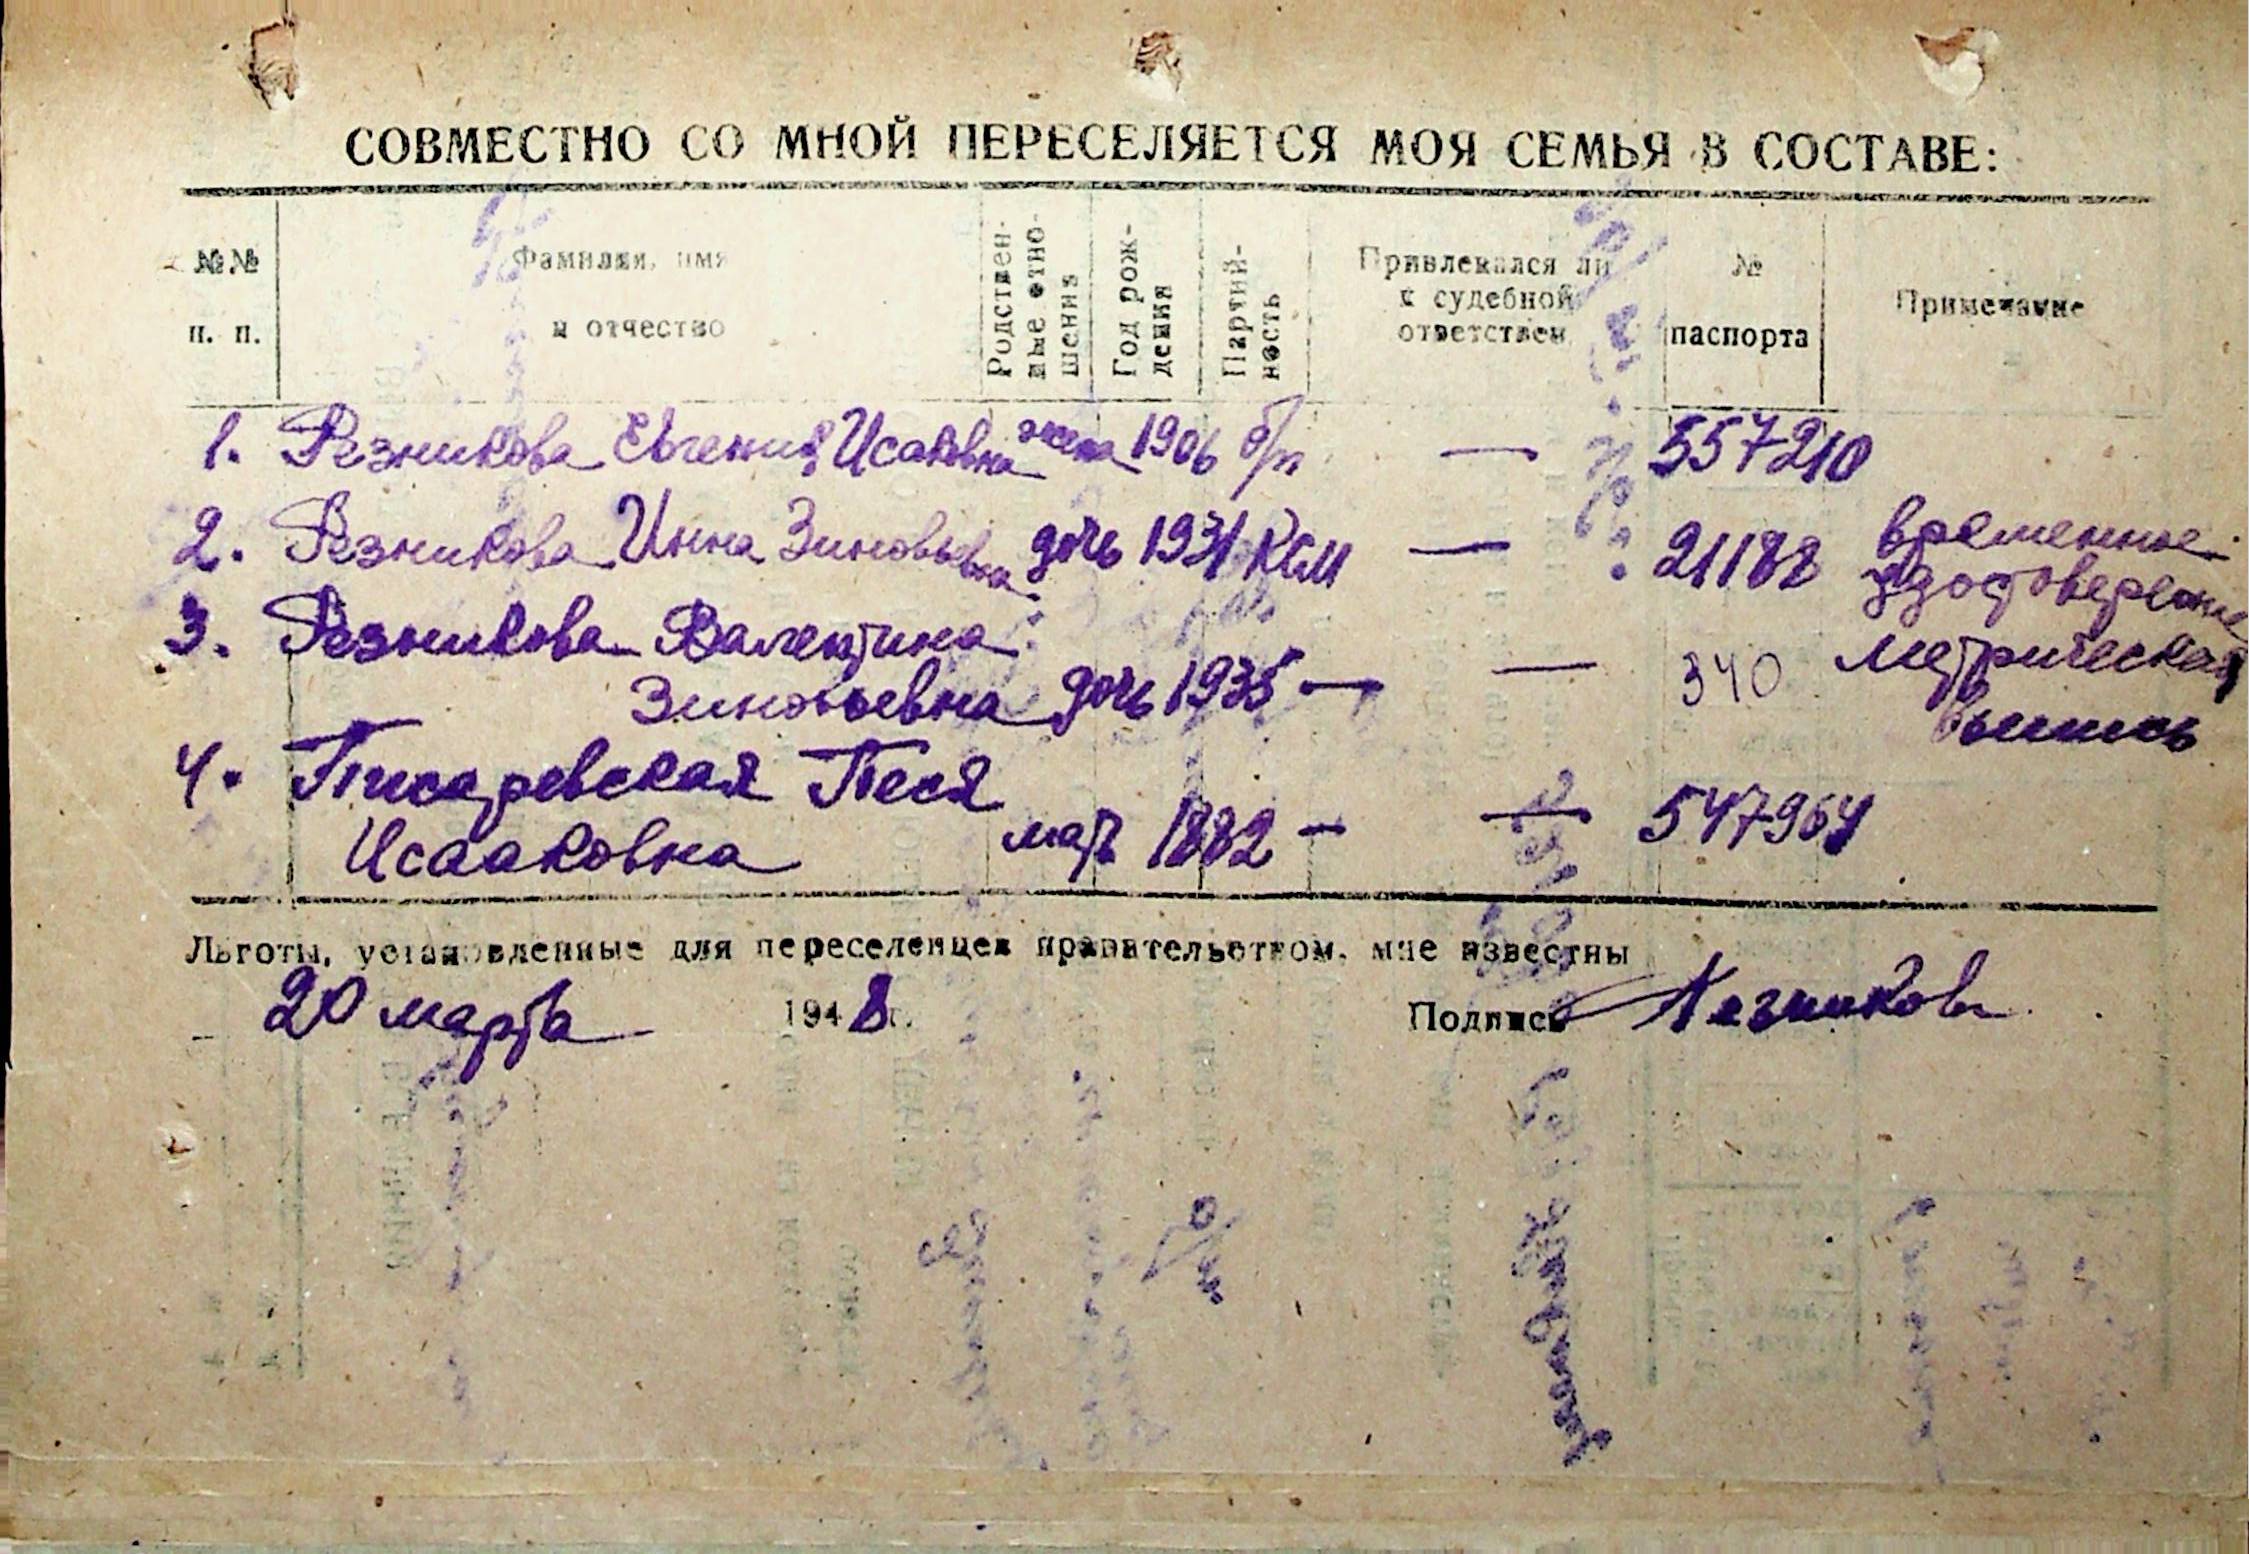 СОВМЕСТНО СО МНОЙ ПЕРЕСЕЛЯЕТСЯ МОЯ СЕМЬЯ В СОСТАВЕ:
№№ п. п. Фамилия, имя и отчество Родственные отношения Год рождения Партийность Привлекался ли к судебной ответствен № паспорта Примечание
1. Резникова Евгения Исаковна жена 1906 б/п — 557210
2. Резникова Инна Зиновьевна дочь 1931 КСМ — 21188 временное удостоверение
3. Резникова Валентина
Зиновьевна дочь 1935 — — 340 метрическая выпись
4. Писаревская Песя
Исааковна мать 1882 — — 547964
Льготы, установленные для переселенцев правительством, мне известны
20 марта 1948 г. Подпись Резников